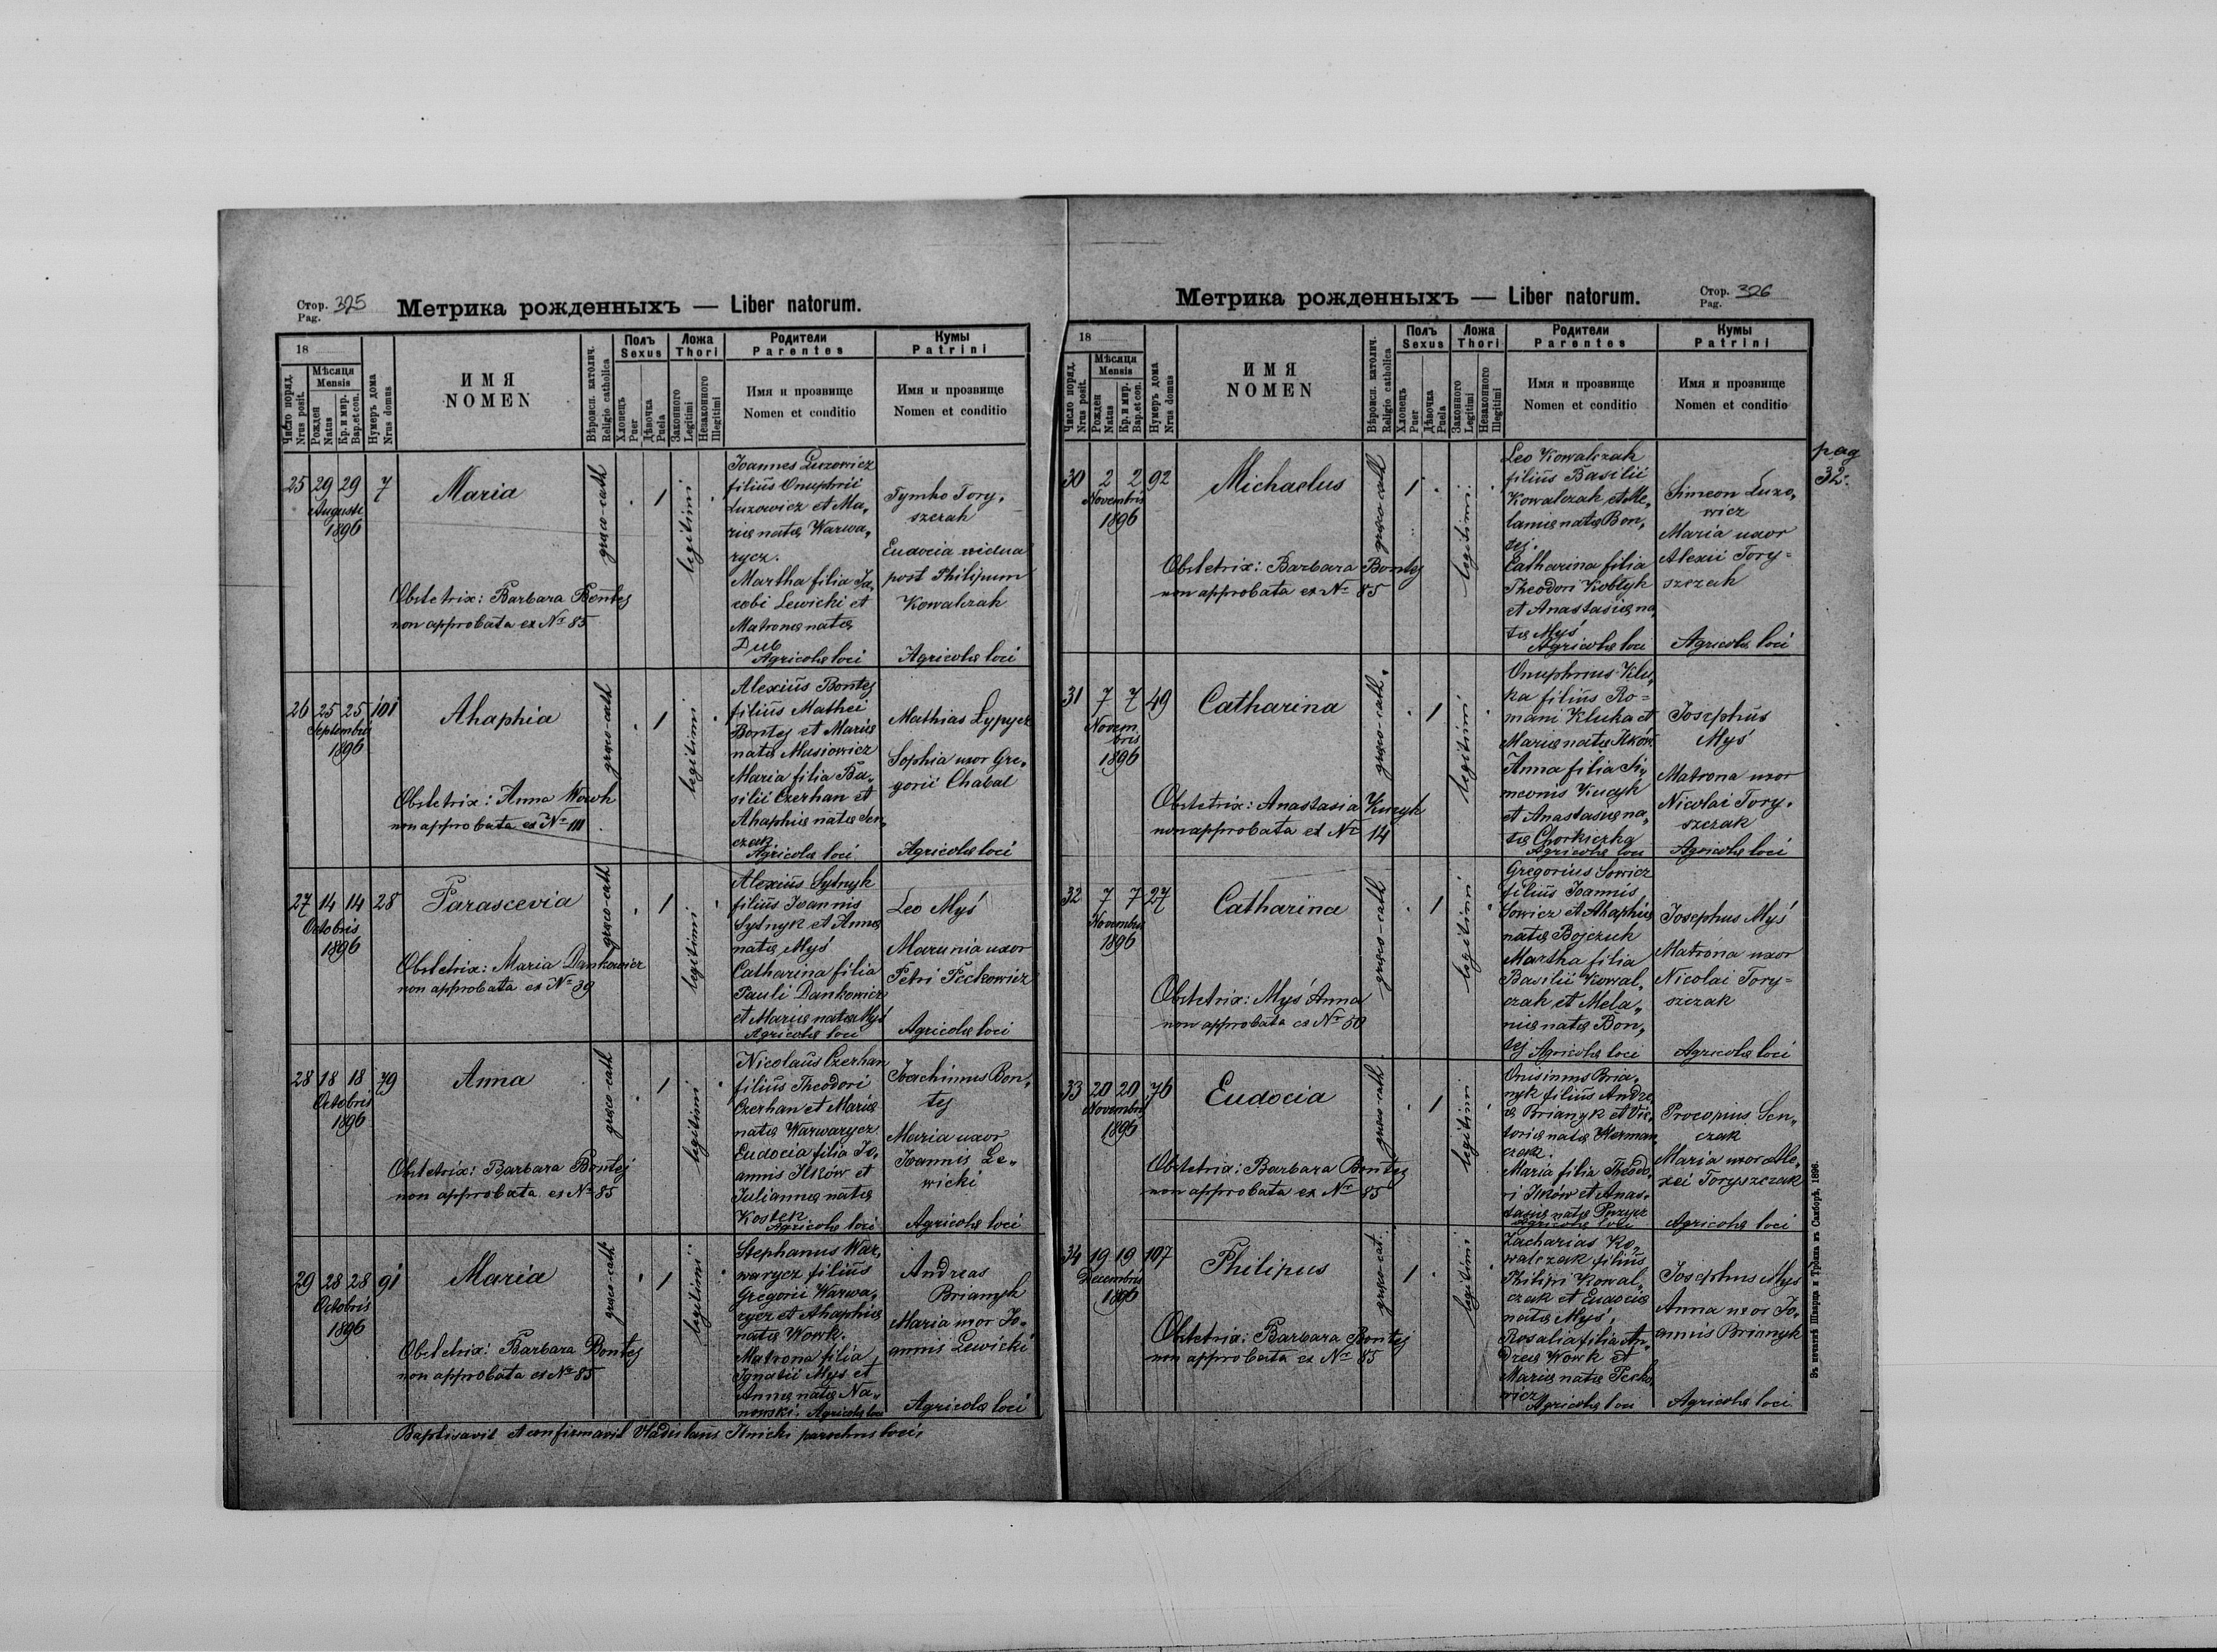 Стор. 325
Pag.
Метрика рожденныхъ — Liber natorum.
18
Число поряд.
Nrus posit.
Мѣсяця
Mensis
Рожден
Natus
Кр. и мир.
Bap. et con.
Нумеръ дома
Nrus domus
ИМЯ
NOMEN
Вѣроисп. католич.
Religio catholica
Полъ
Sexus
Хлопецъ
Puer
Дѣвочка
Puela
Ложа
Thori
Законного
Legitimi
Незаконного
Illegitimi
Родители
Parentes
Имя и прозвище
Nomen et conditio
Кумы
Patrini
Имя и прозвище
Nomen et conditio
25 29 29 7
Augusti
1896
Maria
Obstetrix: Barbara Bontej
non approbata ex Nr 85
græco-cath
1
legitimi
Joannes Luzowicz
filius Onuphrii
Luzowicz et Ma,
riæ natæ Warwa,
rycz.
Martha filia Ja,
cobi Lewicki et
Matronæ natæ
Dub
Agricolæ loci
Tymko Tory,
szczak
Eudocia vidua
post Philipum
Kowalczak
Agricolæ loci
26 25 25 101
Septembris
1896
Ahaphia
Obstetrix: Anna Wowk
non approbata ex Nr 111
græco-cath
1
legitimi
Alexius Bontej
filius Mathei
Bontej et Mariæ
natæ Musiowicz
Maria filia Ba,
silii Czerhan et
Ahaphiæ natæ Sen,
czak
Agricolæ loci
Mathias Lypycz
Sophia uxor Gre,
gorii Chabal
Agricolæ loci
27 14 14 28
Octobris
1896
Parascevia
Obstetrix: Maria Dankowicz
non approbata ex Nr 39
græco-cath
1
legitimi
Alexius Sytnyk
filius Joannis
Sytnyk et Annæ
natæ Myś
Catharina filia
Pauli Dankowicz
et Mariæ natæ Myś
Agricolæ loci
Leo Myś
Marunia uxor
Petri Peckowicz
Agricolæ loci
28 18 18 79
Octobris
1896
Anna
Obstetrix: Barbara Bontej
non approbata ex Nr 85
græco-cath
1
legitimi
Nicolaus Czerhan
filius Theodori
Czerhan et Mariæ
natæ Warwarycz
Eudocia filia Jo,
annis Ilków et
Juliannæ natæ
Kostek
Agricolæ loci
Joachimus Bon,
tej
Maria uxor
Joannis Le,
wicki
Agricolæ loci
29 28 28 91
Octobris
1896
Maria
Obstetrix: Barbara Bontej
non approbata ex Nr 85
græco-cath
1
legitimi
Stephanus War,
warycz filius
Gregorii Warwa,
rycz et Ahaphiæ
natæ Wowk.
Matrona filia
Ignatii Myś et
Annæ natæ Na,
nowski. Agricolæ loci
Andreas
Brianyk
Maria uxor Jo,
annis Lewicki
Agricolæ loci
Baptisavit et confirmavit Vladislaus Ilnicki parochus loci
Стор. 326
Pag.
Метрика рожденныхъ — Liber natorum.
18
Число поряд.
Nrus posit.
Мѣсяця
Mensis
Рожден
Natus
Кр. и мир.
Bap. et con.
Нумеръ дома
Nrus domus
ИМЯ
NOMEN
Вѣроисп. католич.
Religio catholica
Полъ
Sexus
Хлопецъ
Puer
Дѣвочка
Puela
Ложа
Thori
Законного
Legitimi
Незаконного
Illegitimi
Родители
Parentes
Имя и прозвище
Nomen et conditio
Кумы
Patrini
Имя и прозвище
Nomen et conditio
pag
32.
30 2 2 92
Novembris
1896
Michaelus
Obstetrix: Barbara Bontej
non approbata ex Nr 85
græco-cath
1
legitimi
Leo Kowalczak
filius Basilii
Kowalczak et Me,
laniæ natæ Bon,
tej.
Catharina filia
Theodori Kobłyk
et Anastasiæ na,
tæ Myś
Agricolæ loci
Simeon Luzo,
wicz
Maria uxor
Alexii Tory=
szczak
Agricolæ loci
31 7 7 49
Novem
bris
1896
Catharina
Obstetrix: Anastasia Kucyk
non approbata ex Nr 14
græco-cath.
1
legitimi
Onuphrius Klu,
ka filius Ro=
mani Kluka et
Mariæ natæ Ilków
Anna filia Si,
meonis Kucyk
et Anastasiæ na,
tæ Chorkiczka
Agricolæ loci
Josephus
Myś
Matrona uxor
Nicolai Tory,
szczak
Agricolæ loci
32 7 7 27
Novembris
1896
Catharina
Obstetrix: Myś Anna
non approbata ex Nr 50
græco-cath
1
legitimi
Gregorius Sowicz
filius Joannis
Sowicz et Ahaphiæ
natæ Bojczuk
Martha filia
Basilii Kowal,
czak et Mela,
niæ natæ Bon,
tej Agricolæ loci
Josephus Myś
Matrona uxor
Nicolai Tory=
szczak
Agricolæ loci
33 20 20 76
Novembris
1896
Eudocia
Obstetrix: Barbara Bontej
non approbata ex Nr 85
græco-cath.
1
legitimi
Onisimus Bria,
nyk filius Andre,
æ Brianyk et Vic,
toriæ natæ Herman,
czak.
Maria filia Theodo,
ri Ilków et Anas,
tasiæ natæ
Agricolæ loci
Procopius Sen,
czak
Maria uxor Ale,
xei Toryszczak
Agricolæ loci
34 19 19 107
Decembris
1896
Philipus
Obstetrix: Barbara Bontej
non approbata ex Nr 85
græco-cat.
1
legitimi
Zacharias Ko,
walczak filius
Philipi Kowal,
czak et Eudociæ
natæ Myś,
Rosalia filia An,
dreæ Wowk et
Mariæ natæ Pecko,
wicz
Agricolæ loci
Josephus Myś
Anna uxor Jo,
annis Brianyk
Agricolæ loci
Въ печатнѣ Шварца и Трояна въ Самборѣ, 1896.